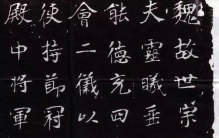 魏故世宗
夫靈曦垂
能德充四
會二儀以
使持節冠
殿中將軍